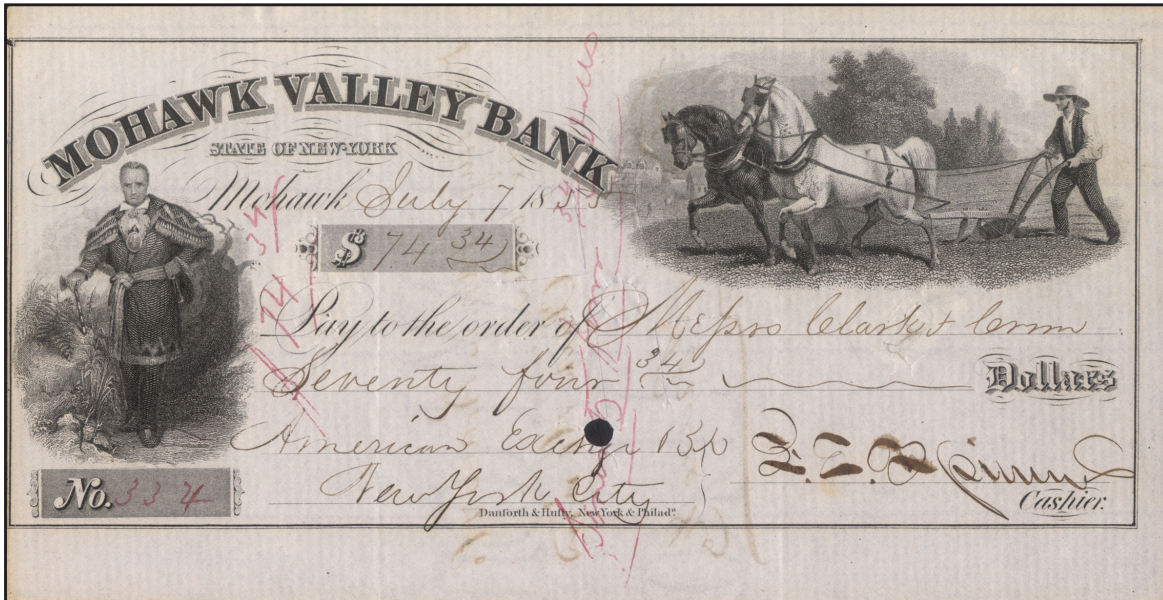 MOHAWK VALLEY BANK
STATE OF NEW-YORK
Mohawk July 7 1855
$ 74 34
Pay to the order of Messrs Clark &
Seventy four 34 Dollars
American Exchge Bk
New York City
Cashier.
No. 334
Danforth & Hufty, New York & Philada.
74 34